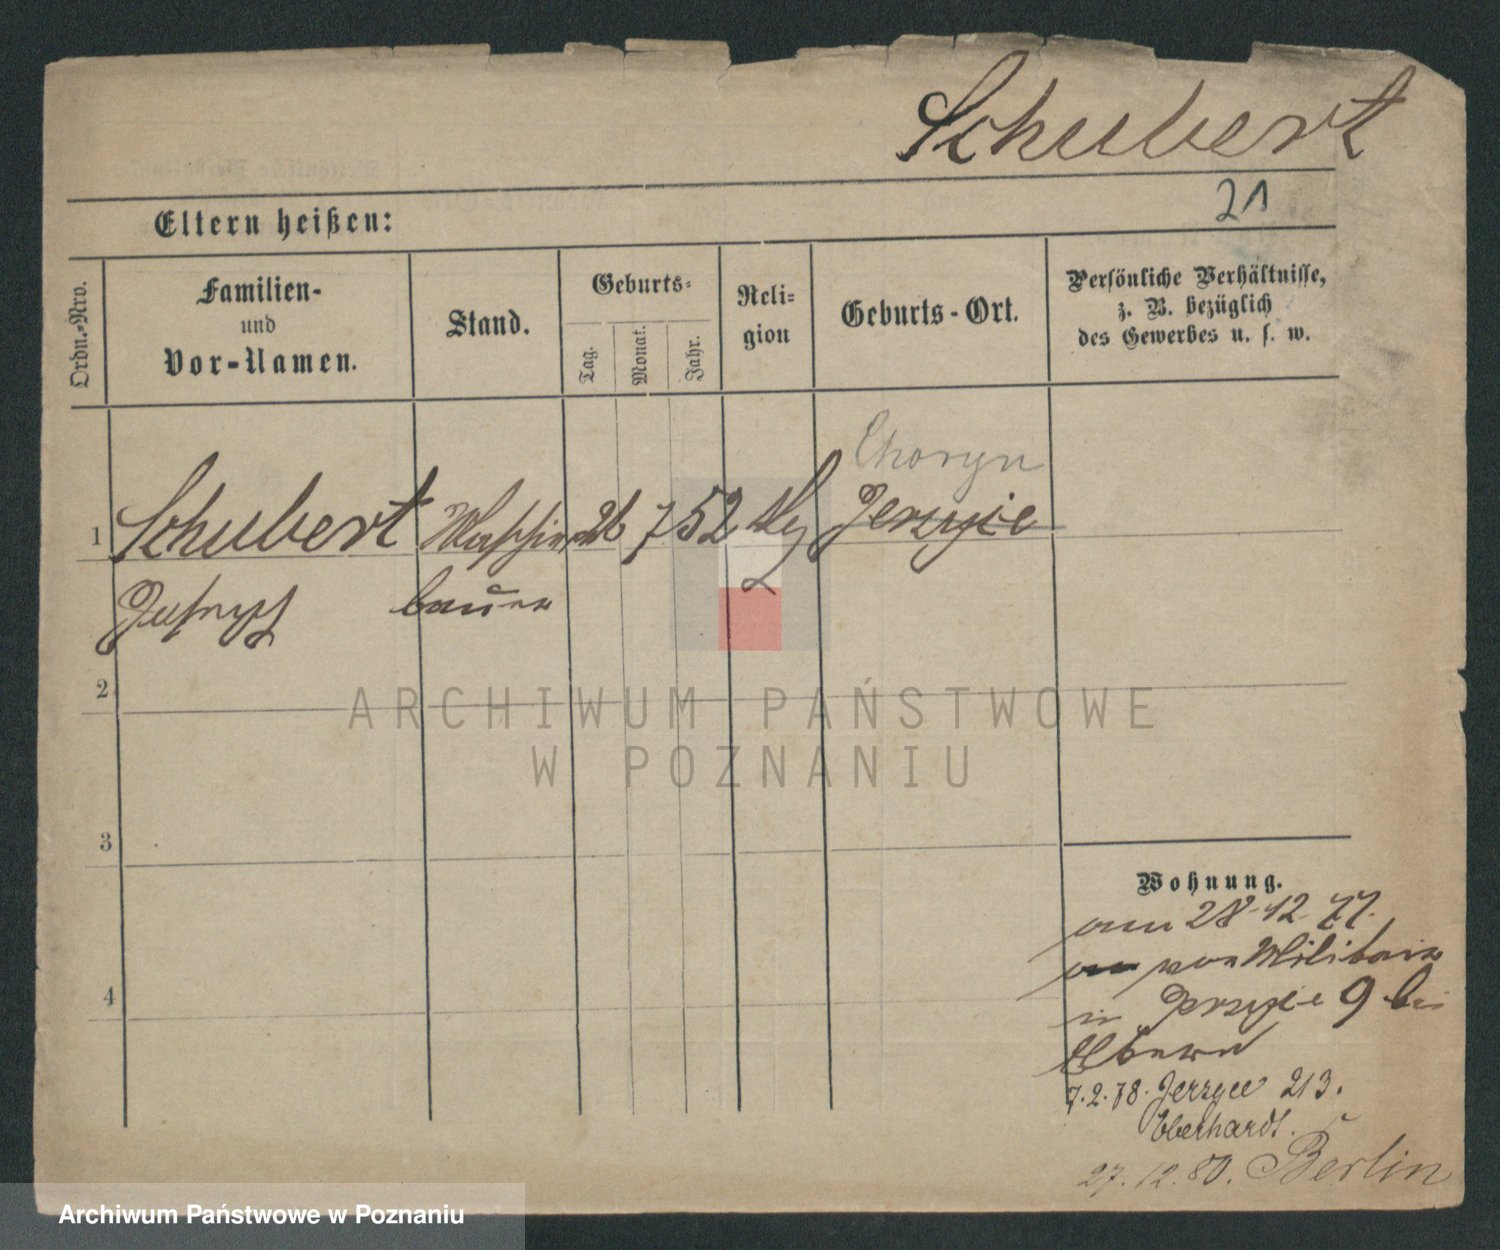 Schubert
21
Eltern heißen:
Ordn.-Nro.
Familien-
und
Vor-Namen.
Stand.
Geburts-
Tag.
Monat.
Jahr.
Reli-
gion
Geburts-Ort.
Persönliche Verhältnisse,
z. B. bezüglich
des Gewerbes u. s. w.
Choryn
1 Schubert Maschinen 26 7 52 Jerzyce
Joseph bauer
2
3
4
Wohnung.
am 28.12.77.
von Militair
in Jerzyce 9 bei
7.2.78. Jerzyce 213.
Eberhardt.
27.12.80. Berlin
ARCHIWUM PAŃSTWOWE
W POZNANIU
Archiwum Państwowe w Poznaniu